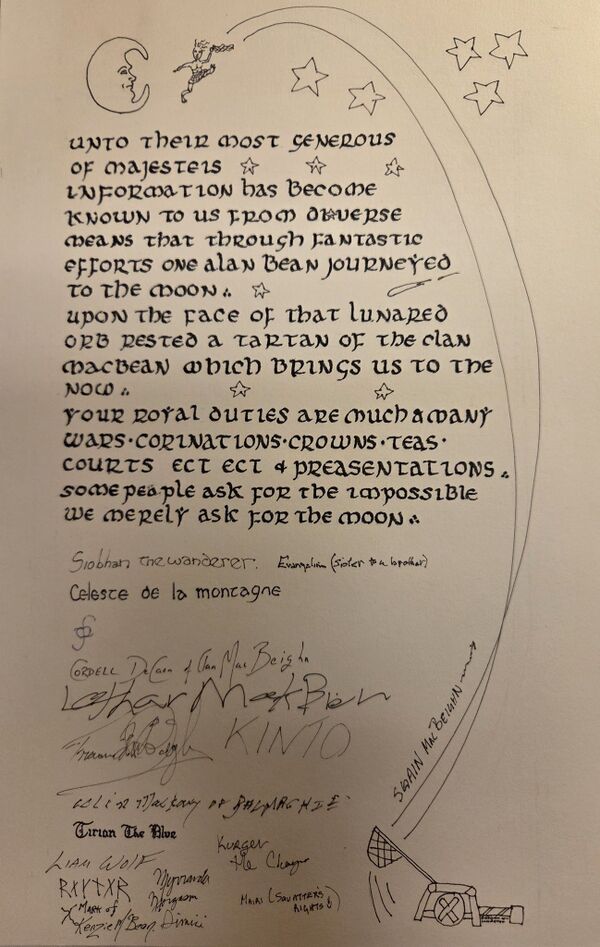 unto their most generous
of majesteis
information has become
known to us from diverse
means that through fantastic
efforts one alan bean journeyed
to the moon
upon the face of that lunared
orb rested a tartan of the clan
macbean which brings us to the
now
your royal duties are much & many
wars·corinations·crowns·teas·
courts ect ect & preasentations
some people ask for the impossible
we merely ask for the moon
Siobhan the wanderer. Evangeline (sister to a brother)
Celeste de la montagne
Cordell DeCaen of Clan MacBeighn
Lothar MakBien
KINTO
SWAIN MacBEIGHN
of BALMAGHIE
Tirian The Blue
Kurger
the
LIAM WOLF
ᚱᚷᚾᛏᚷᚱ
Mhari (Squatter's
Rights)
X Mark of
Kenzie M'Bean